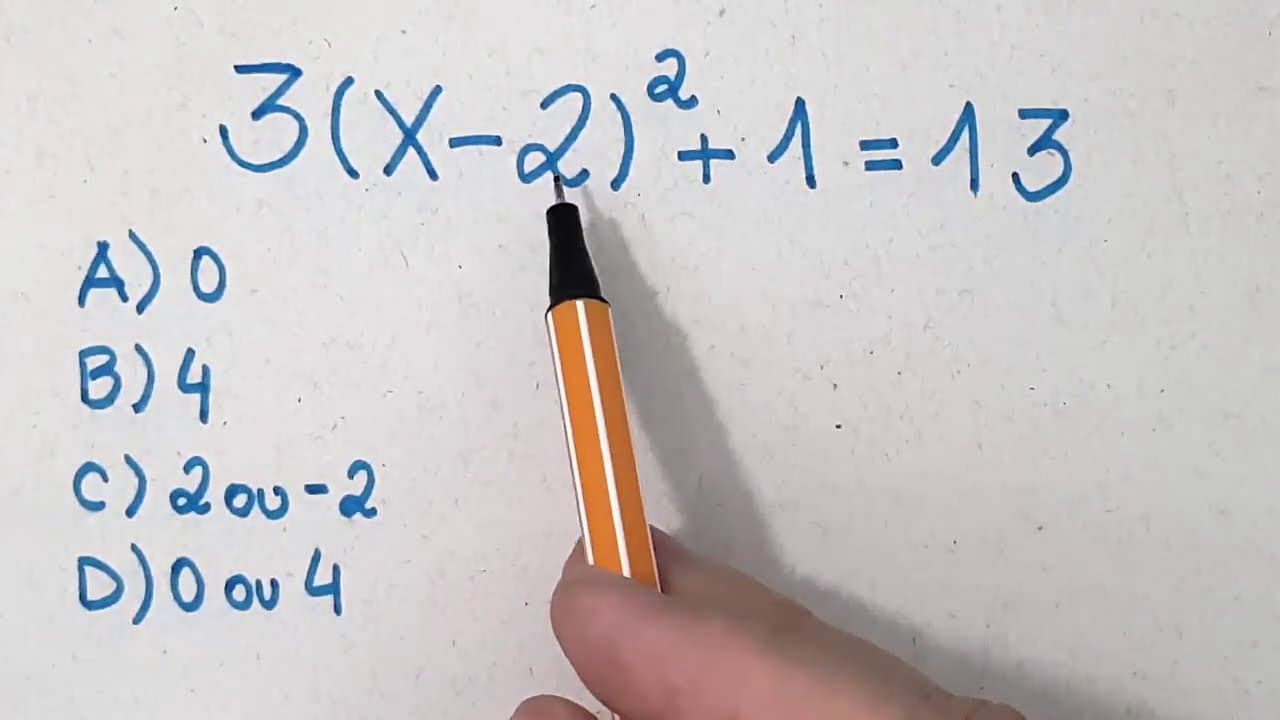 3(x-2)² + 1 = 13
A) 0
B) 4
C) 2 ou -2
D) 0 ou 4